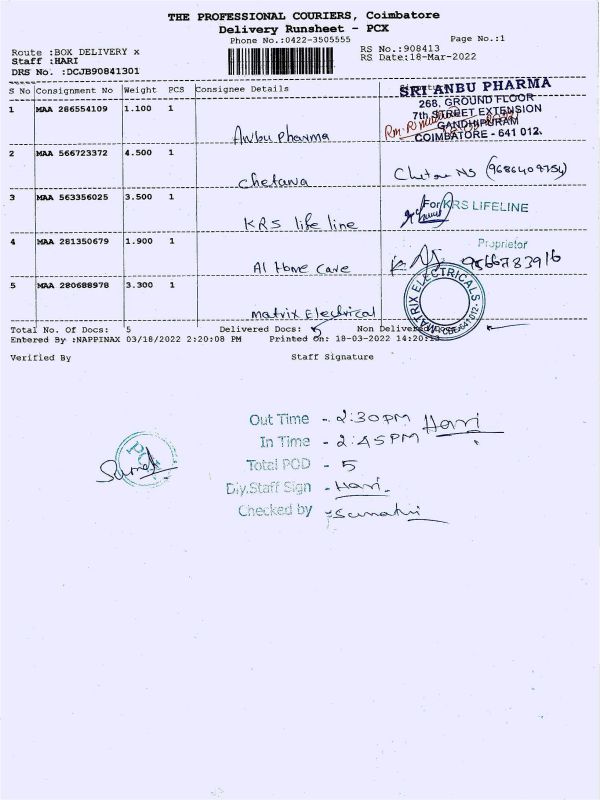 THE PROFESSIONAL COURIERS, Coimbatore
Delivery Runsheet - PCX
Phone No.:0422-3505555 Page No.:1
Route :BOX DELIVERY x RS No.:908413
Staff :HARI RS Date:18-Mar-2022
DRS No. :DCJB90841301
S No Consignment No Weight PCS Consignee Details
SRI ANBU PHARMA
268, GROUND FLOOR
7th STREET EXTENSION
GANDHIPURAM
COIMBATORE - 641 012.
1 MAA 286554109 1.100 1
Anbu Pharma
2 MAA 566723372 4.500 1
Chetana NS (9686409754)
chetana
3 MAA 563356025 3.500 1
For KRS LIFELINE
KRS life line
Proprietor
4 MAA 281350679 1.900 1
9566783916
AI Home Care
5 MAA 280688978 3.300 1
MATRIX ELECTRICALS
CBE-641 012
matrix Electrical
Total No. Of Docs: 5 Delivered Docs: 5 Non Delivered
Entered By :NAPPINAX 03/18/2022 2:20:08 PM Printed On: 18-03-2022 14:20:13
Verified By Staff Signature
Out Time - 2:30PM Hari
In Time - 2:45PM
Total POD - 5
Dly.Staff Sign - Hari
Checked by